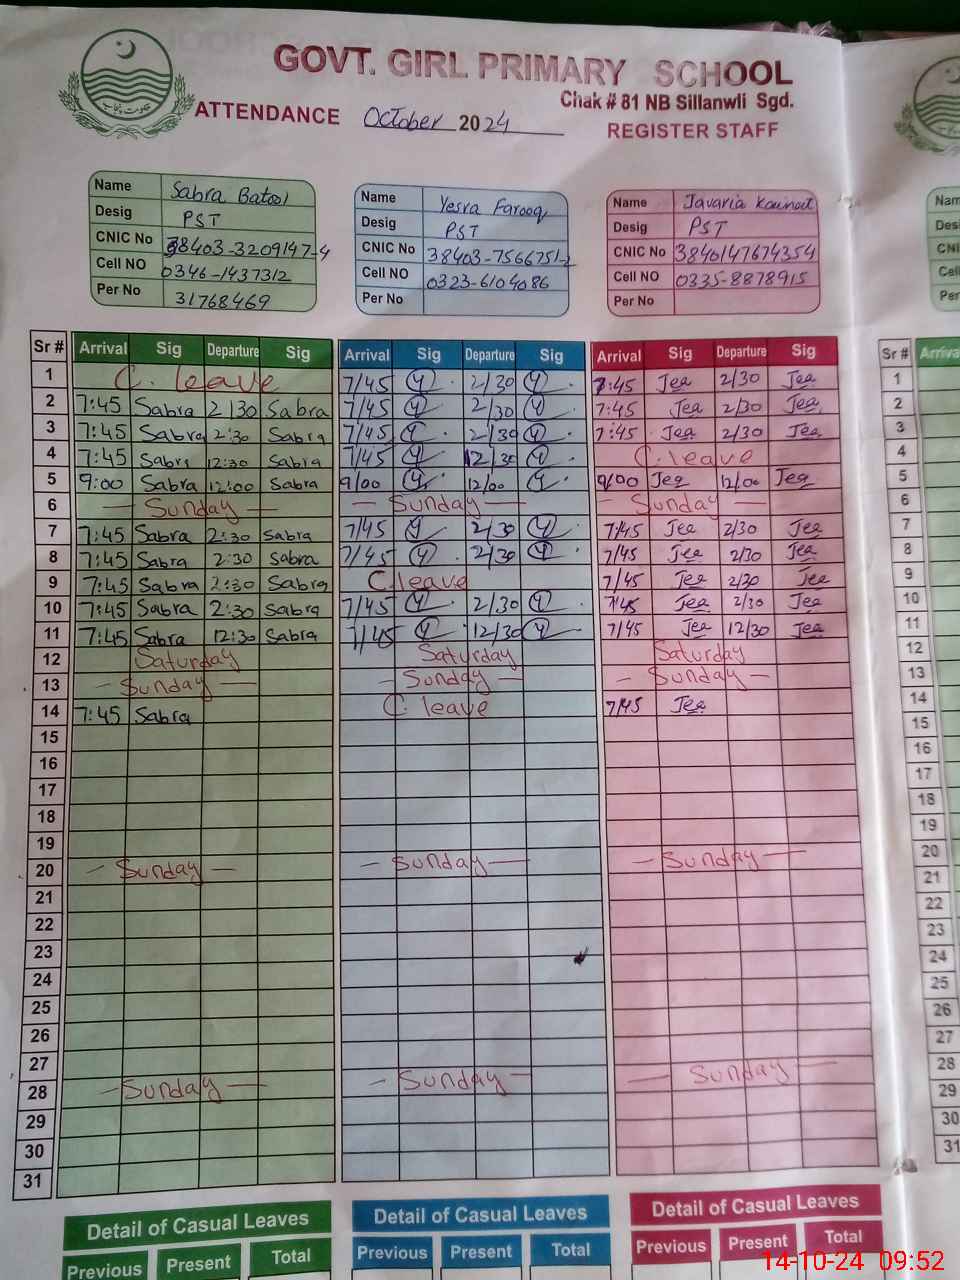 GOVT. GIRL PRIMARY SCHOOL
Chak # 81 NB Sillanwli Sgd.
ATTENDANCE October 2024
REGISTER STAFF
حکومت پنجاب
Name Sabra Batool
Desig PST
CNIC No 38403-3209147-4
Cell NO 0346-1437312
Per No 31768469
Name Yesra Farooq
Desig PST
CNIC No 38403-7566751-2
Cell NO 0323-6104086
Per No
Name Javaria Kainaat
Desig PST
CNIC NO 3840147674354
Cell NO 0335-8878915
Per No
Sr # Arrival Sig Departure Sig Arrival Sig Departure Sig Arrival Sig Departure Sig Sr # Arriva
1 C. leave 7/45 Y 2/30 Y 7:45 Jea 2/30 Jea 1
2 7:45 Sabra 2/30 Sabra 7/45 Y 2/30 Y 7:45 Jea 2/30 Jea 2
3 7:45 Sabra 2:30 Sabra 7/45 Y 2/30 Y 7:45 Jea 2/30 Jea 3
4 7:45 Sabra 12:30 Sabra 7/45 Y 12/30 Y C.leave 4
5 9:00 Sabra 12:00 Sabra 9/00 Y 12/00 Y 9/00 Jea 12/00 Jea 5
6 — Sunday — — Sunday — — Sunday — 6
7 7:45 Sabra 2:30 Sabra 7/45 Y 2/30 Y 7/45 Jea 2/30 Jea 7
8 7:45 Sabra 2:30 Sabra 7/45 Y 2/30 Y 7/45 Jea 2/30 Jea 8
9 7:45 Sabra 2:30 Sabra C.leave 7/45 Jea 2/30 Jea 9
10 7:45 Sabra 2:30 Sabra 7/45 Y 2/30 Y 7/45 Jea 2/30 Jea 10
11 7:45 Sabra 12:30 Sabra 7/45 Y 12/30 Y 7/45 Jea 12/30 Jea 11
12 Saturday Saturday Saturday 12
13 — Sunday — — Sunday — — Sunday — 13
14 7:45 Sabra C. leave 7/45 Jea 14
15 15
16 16
17 17
18 18
19 19
20 — Sunday — — Sunday — — Sunday — 20
21 21
22 22
23 23
24 24
25 25
26 26
27 — Sunday — — Sunday — — Sunday — 27
28 28
29 29
30 30
31 31
Detail of Casual Leaves Detail of Casual Leaves Detail of Casual Leaves
Previous Present Total Previous Present Total Previous Present Total
14-10-24 09:52